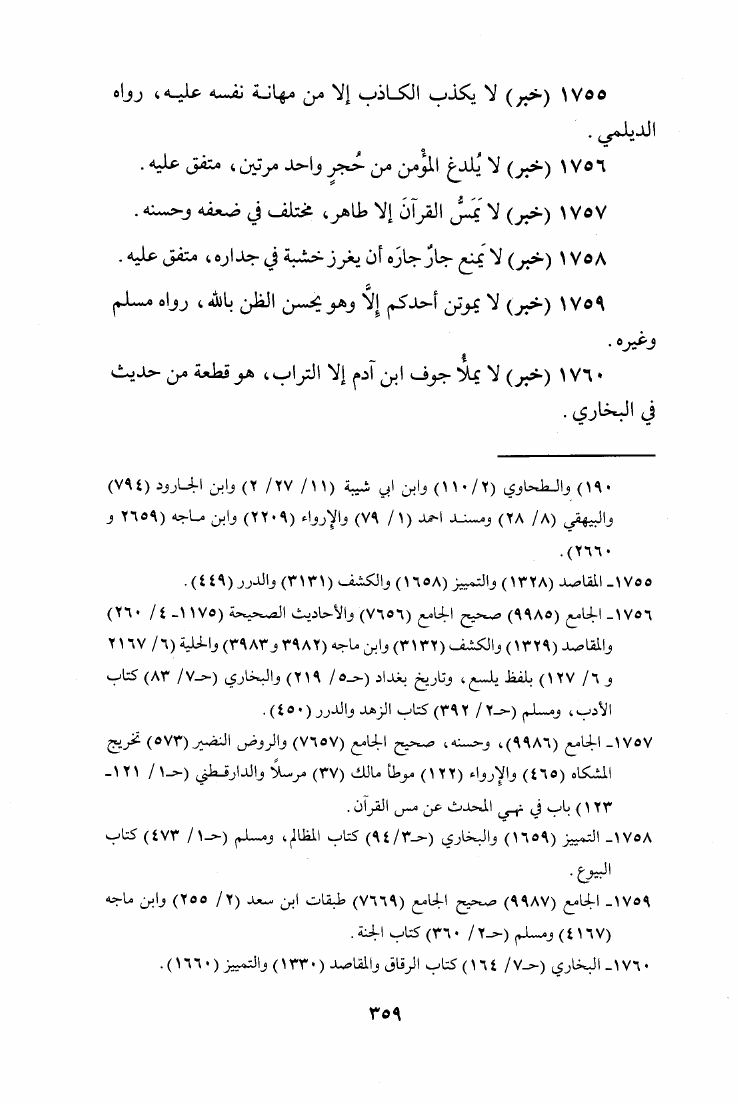 ١٧٥٥ (خبر) لا يكذب الكـاذب إلا من مهانـة نفسه عليـه، رواه
الديلمي.
١٧٥٦ (خبر) لا يُلدغ المؤمن من حُجرٍ واحد مرتين، متفق عليه.
١٧٥٧ (خبر) لا يَمَسُّ القرآنَ إلا طاهر، مختلف في ضعفه وحسنه.
١٧٥٨ (خبر) لا يَمنع جارٌ جارَه أن يغرز خشبة في جداره، متفق عليه.
١٧٥٩ (خبر) لا يموتن أحدكم إلَّا وهو يحسن الظن بالله، رواه مسلم
وغيره.
١٧٦٠ (خبر) لا يملأُ جوف ابن آدم إلا التراب، هو قطعة من حديث
في البخاري.
١٩٠) والـطحاوي (٢/ ١١٠) وابن ابي شيبة (١١/ ٢٧/ ٢) وابن الجـارود (٧٩٤)
والبيهقي (٨/ ٢٨) ومسنـد احمد (١/ ٧٩) والإرواء (٢٢٠٩) وابن مـاجه (٢٦٥٩ و
٢٦٦٠).
١٧٥٥ـ المقاصد (١٣٢٨) والتمييز (١٦٥٨) والكشف (٣١٣١) والدرر (٤٤٩).
١٧٥٦ـ الجامع (٩٩٨٥) صحيح الجامع (٧٦٥٦) والأحاديث الصحيحة (١١٧٥ـ ٤/ ٢٦٠)
والمقاصد (١٣٢٩) والكشف (٣١٣٢) وابن ماجه (٣٩٨٢ و٣٩٨٣) والحلية (٦/ ٢١٦٧
و ٦/ ١٢٧) بلفظ يلسع، وتاريخ بغداد (حـ٥/ ٢١٩) والبخاري (حـ٧/ ٨٣) كتاب
الأدب، ومسلم (حـ٢/ ٣٩٢) كتاب الزهد والدرر (٤٥٠).
١٧٥٧ـ الجامع (٩٩٨٦)، وحسنه، صحيح الجامع (٧٦٥٧) والروض النضير (٥٧٣) تخريج
المشكاه (٤٦٥) والإرواء (١٢٢) موطأ مالك (٣٧) مرسلًا والدارقـطني (حـ١/ ١٢١ـ
١٢٣) باب في نهـي المحدث عن مس القرآن.
١٧٥٨ـ التمييز (١٦٥٩) والبخاري (حـ٣/ ٩٤) كتاب المظالم، ومسلم (حـ١/ ٤٧٣) كتاب
البيوع.
١٧٥٩ـ الجامع (٩٩٨٧) صحيح الجامع (٧٦٦٩) طبقات ابن سعد (٢/ ٢٥٥) وابن ماجه
(٤١٦٧) ومسلم (حـ٢/ ٣٦٠) كتاب الجنة.
١٧٦٠ـ البخاري (حـ٧/ ١٦٤) كتاب الرقاق والمقاصد (١٣٣٠) والتمييز (١٦٦٠).
٣٥٩